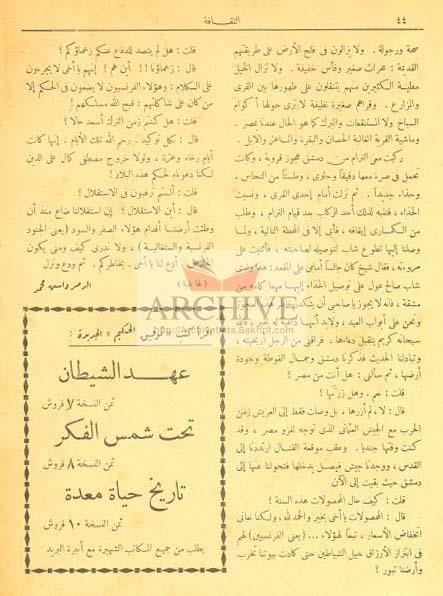 ٤٤
الثقافة
صحة ورجولة . ولا يزالون في فلح الأرض على طريقتهم
القديمة : محراث صغير وفأس خفيفة . ولا تزال الخيل
مطية الكثيرين منهم يتنقلون على ظهورها بين القرى
والمزارع . وقراهم صغيرة نظيفة لا ترى حولها أكوام
السباخ ولا المستنقعات والبرك كما هو الحال عندنا بمصر .
وماشية القرية الغالبة الحصان والبقرة والماعز والإبل .
ركبت معي الترام من دمشق عجوز قروية ، وكانت
تحمل في صرة معها دقيقاً وحلوى ، وطستاً من النحاس ،
وحذاء جديداً . ثم نزلت أمام إحدى القرى ، ونسيت
الحذاء ، فتنبه لذلك أحد الركاب بعد قيام الترام ، وطلب
من الكمساري إيقافه ، فأبى إلا في المحطة التالية ، ولما
وصلنا إليها تطوع شاب لتوصيله لصاحبته ، فأثنيت على
مروءته ، فقال شيخ كان جالساً أمامي على المقعد : هذا ولدى
شاب صالح عول على توصيل الحذاء إليها مهما كلفه من
مشقة ، فانه لا يجوز يا صاحبي أن
ونحن على أبواب العيد ، ولابد أنها داعية له خير ، فالله
سبحانه كريم يتقبل دعاءها . فراقني من الرجل أريحيته ،
وتبادلنا الحديث فذكرنا دمشق وجمال الغوطة وجودة
أرضها ، ثم سألني : هل أنت من مصر ؟
قلت : نعم ، وهل زرتها ؟
قال : لا ، لم أزرها ، بل وصلت فقط إلى العريش زمن
الحرب مع الجيش العثماني الذي توجه لغزو مصر ، وقد
كنت وقتها جندياً . وعقب موقعة القنال ارتددنا إلى
القدس ، ووجدنا جيش فيصل يدخلها فتحولنا عنها إلى
دمشق حيث بقيت إلى الآن
قلت : كيف حال المحصولات هذه السنة ؟
قال : المحصولات يا أخي بخير والحمد لله ، ولكنا نعاني
انخفاض الأسعار ، تباً لهؤلاء ... (يعني الفرنسيين) لهم
في ابتزاز الأرزاق حيل الشياطين حتى كادت بيوتنا تخرب
وأرضنا تبور ؟
قلت : هل لم يتصد للدفاع عنكم زعماؤكم ؟
قال : زعماؤنا !! أين هم ؟ إنهم يا أخي لا يجرءون
على الكلام ؛ وهؤلاء الفرنسيون لا يضعون في الحكم إلا
من كان على شاكلتهم : قبح الله مسلكهم !
قلت : هل كنتم زمن الترك أسعد حالا ؟
قال : بكل توكيد . رحم الله تلك الأيام . إنها كانت
أيام رخاء وعزة ، ولولا خروج مصطفى كمال على الدين
لكنا دعوناه لحكم هذه البلاد !
قلت : ألستم ترغبون في الاستقلال ؟
قال : أين الاستقلال ؟ إن استقلالنا ضاع منذ أن
وطئت أرضنا أقدام هؤلاء الصفر والسود (يعني الجنود
الفرنسية والسنغالية) ، ولا ندري كيف ومتى يكون
أدع لنا يا أخي . بخاطركم . ثم ودع ونزل
ARCHIVE
http://Archivebeta.Sakhrit.com
عهد الشيطان
ثمن النسخة ٧ قروش
تحت شمس الفكر
ثمن النسخة ٨ قروش
تاريخ حياة معدة
ثمن النسخة ١٠ قروش
يطلب من جميع المكاتب الشهيرة مع أجرة البريد